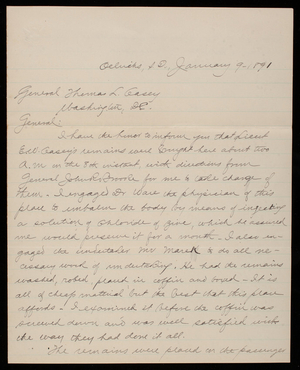 Oelrichs, S.D., January 9, 1891
General Thomas L Casey
Washington, D.C.
General:
I have the honor to inform you that Lieut
Edw. Casey's remains were brought here about two
A.M. on the 8th instant with directions from
General John R. Brooke for me to take charge of
them. I engaged Dr. Ware the physician of this
place to embalm the body by means of injecting
a solution of chloride of zinc, which he assured
me would preserve it for a month. I also en-
gaged the undertaker Mr Marek to do all ne-
cessary work of undertaking. He had the remains
washed, robed, placed in coffin and box. It is
all of cheap material but the best that this place
affords. I examined it before the coffin was
screwed down and was well satisfied with
the way they had done it all.
The remains were placed on the passenger